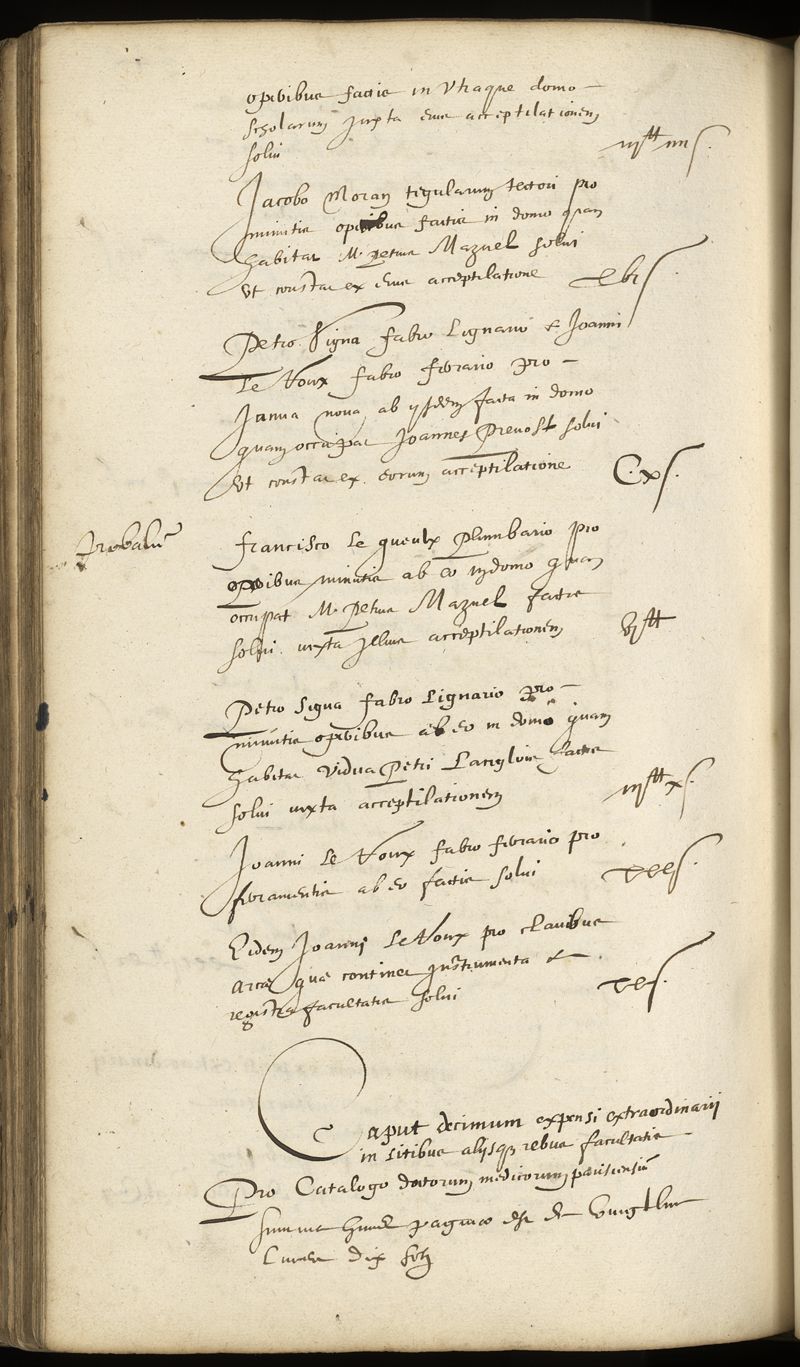 opibus factis in utraque domo
scholarum juxta eius acceptilationem
solui
iij lt iiij s.
Jacobo Moran tegularum tectori pro
minutis opibus factis in domo quam
habitat M. Petrus Mazuel solui
ut constat ex eius acceptilatione
Petro Signa fabro Lignario & Joanni
Le Noux fabro ferrario pro
Janua nova ab ysdem facta in domo
quam occupat Joannes Prevost solui
ut constat ex eorum acceptilatione
C.x s.
Francisco Le gueulx Plumbario pro
opibus minutis ab eo in domo quam
occupat M. Petrus Mazuel factis
solui iuxta illius acceptilationem
vj lt
Petro Signa fabro Lignario pro
minutis opibus ab eo in domo quam
habitat vidua Petri Langlois factis
solui iuxta acceptilationem
iij lt x s.
Joanni Le Noux fabro ferrario pro
ferramentis ab eo factis solui
Eidem Joanni Le Noux pro clavibus
arcae quae continet instrumenta &
registra facultatis solui
Caput decimum expensi extraordinarii
in Litibus alijsq rebus facultatis
Pro Catalogo doctorum medicorum parisiensiu
Summa huius paginae est de vingt huit
Livres dix solz